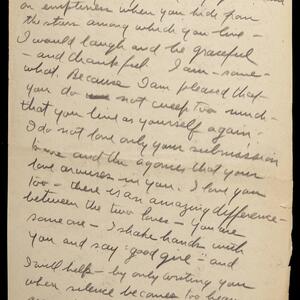 on emptiness when you hide from
the stars among which you live -
I would laugh and be graceful
- and thankful. I am - some -
what. Because I am pleased that
you do not weep too much -
that you live as yourself again.
I do not love only your submission
to me and the agonies that your
love arouses in you. I love you
too - there is an amazing difference -
between the two loves - you are
someone - I shake hands with
you and say "good girl" - and
I will help - by only writing you
when silence becomes too heavy